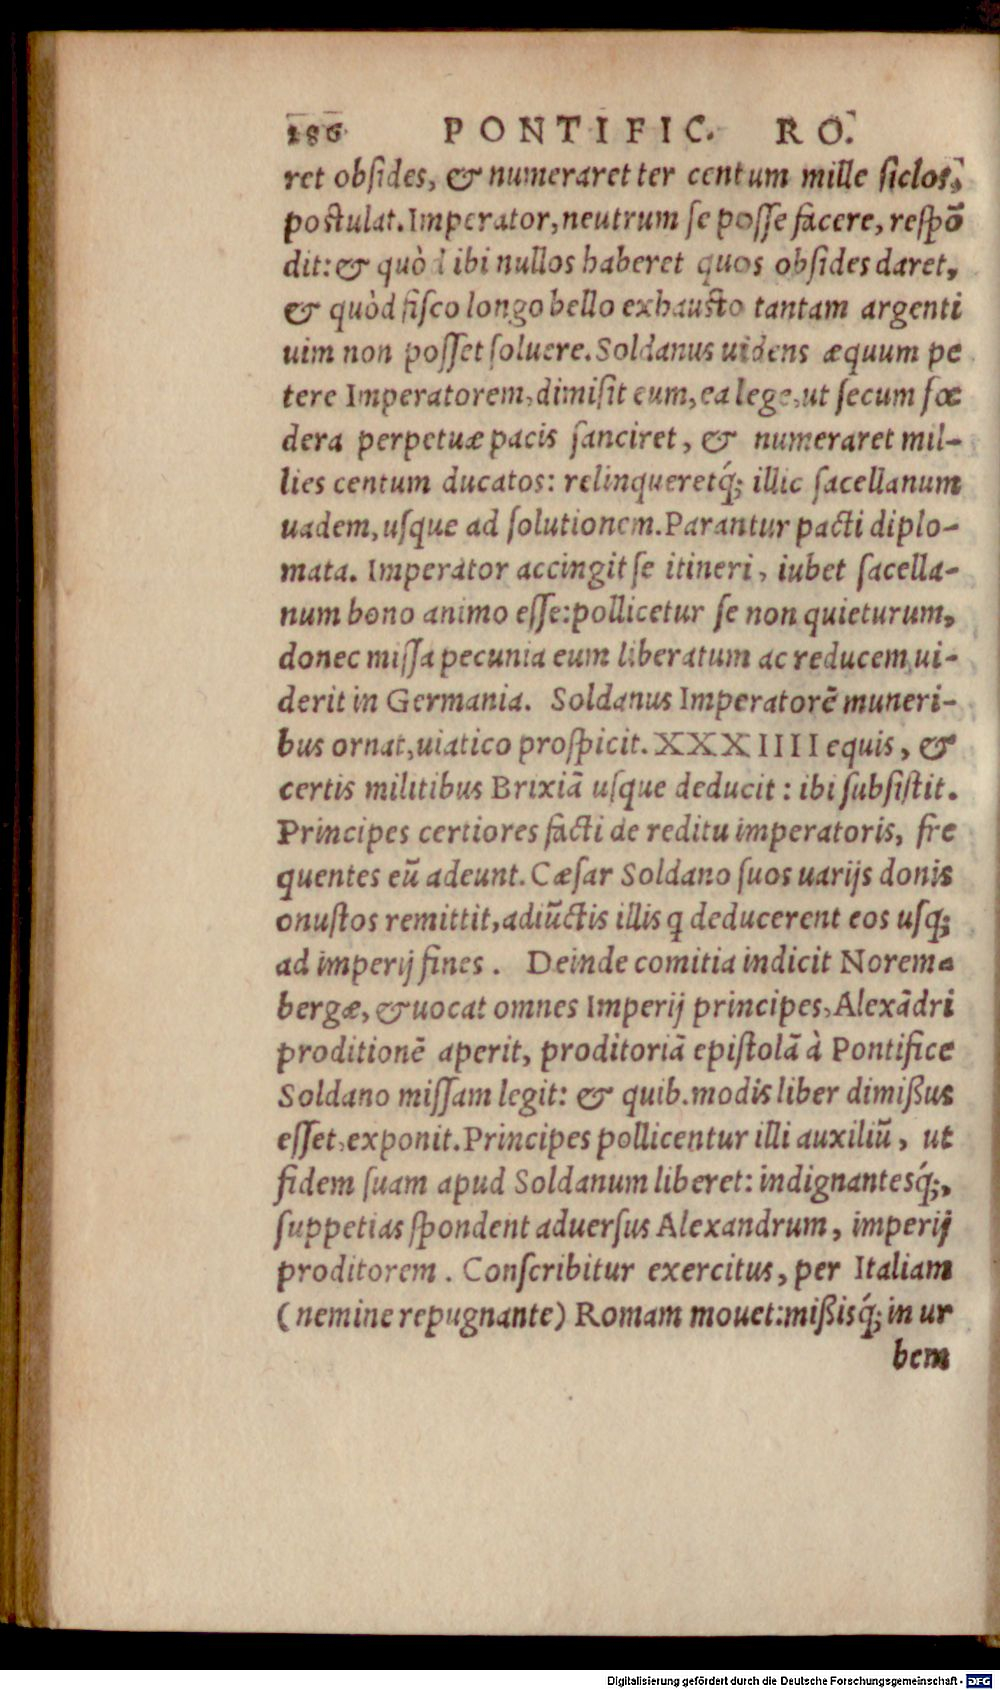 186 PONTIFIC. RO.
ret obſides, & numeraret ter centum mille ſiclos,
poſtulat. Imperator, neutrum ſe poſſe facere, reſpō
dit: & quòd ibi nullos haberet quos obſides daret,
& quòd fiſco longo bello exhauſto tantam argenti
uim non poſſet ſoluere. Soldanus uidens æquum pe
tere Imperatorem, dimiſit eum, ea lege, ut ſecum fœ
dera perpetuæ pacis ſanciret, & numeraret mil-
lies centum ducatos: relinqueretq́; illic ſacellanum
uadem, uſque ad ſolutionem. Parantur pacti diplo-
mata. Imperator accingit ſe itineri, iubet ſacella-
num bono animo eſſe: pollicetur ſe non quieturum,
donec miſſa pecunia eum liberatum ac reducem ui-
derit in Germania. Soldanus Imperatorē muneri-
bus ornat, uiatico proſpicit. XXXIIII equis, &
certis militibus Brixiā uſque deducit: ibi ſubſiſtit.
Principes certiores facti de reditu imperatoris, fre
quentes eū adeunt. Cæſar Soldano ſuos uarijs donis
onuſtos remittit, adiūctis illis q deducerent eos uſq;
ad imperij fines. Deinde comitia indicit Norem-
bergæ, & uocat omnes Imperij principes, Alexādri
proditionē aperit, proditoriā epiſtolā à Pontifice
Soldano miſſam legit: & quib. modis liber dimißus
eſſet, exponit. Principes pollicentur illi auxiliū, ut
fidem ſuam apud Soldanum liberet: indignantesq́;,
ſuppetias ſpondent aduerſus Alexandrum, imperij
proditorem. Conſcribitur exercitus, per Italiam
(nemine repugnante) Romam mouet: mißisq́; in ur
bem
Digitalisierung gefördert durch die Deutsche Forschungsgemeinschaft - DFG